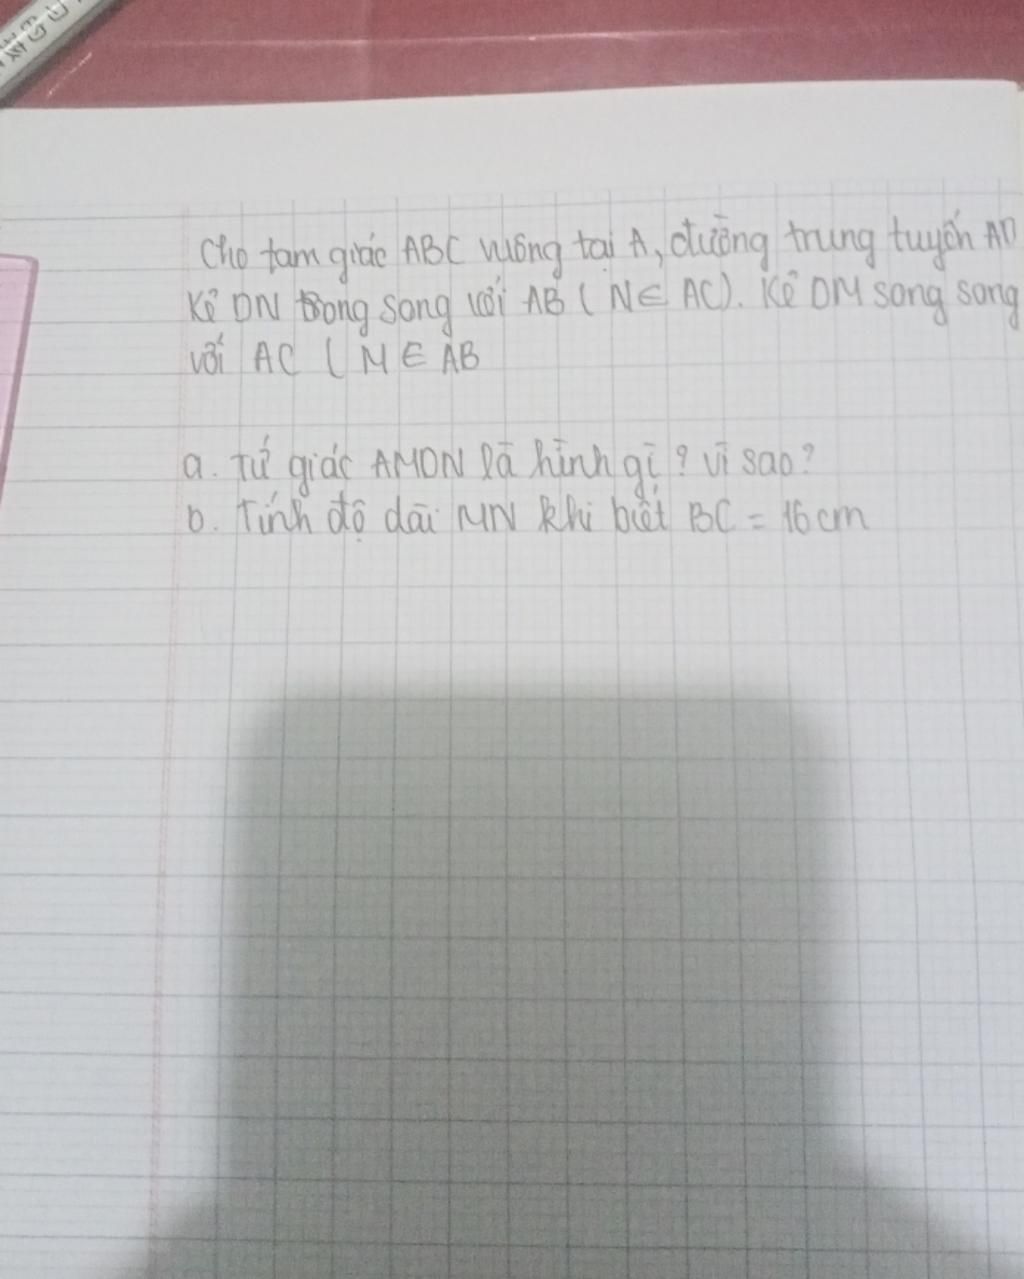 Cho tam giác ABC vuông tại A, đường trung tuyến AD
Kẻ DN song song với AB ( N ∈ AC). Kẻ DM song song
với AC ( M ∈ AB
a. Tứ giác AMDN là hình gì ? vì sao?
b. Tính độ dài MN khi biết BC = 16 cm